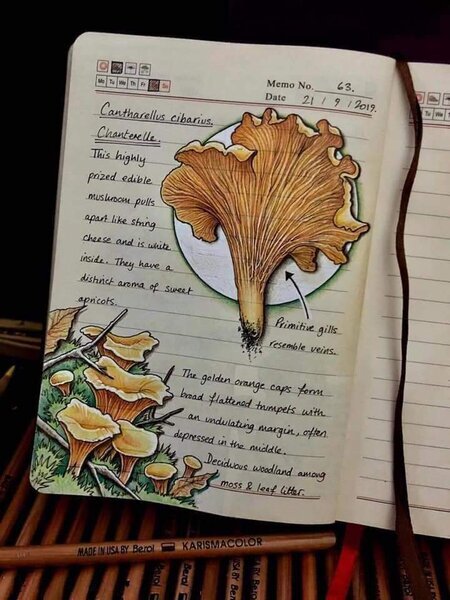 Mo Tu We Th Fr Sa Su
Memo No. 63.
Date 21 / 9 / 2019.
Cantharellus cibarius.
Chanterelle.
This highly
prized edible
mushroom pulls
apart like string
cheese and is white
inside. They have a
distinct aroma of sweet
apricots.
Primitive gills
resemble veins.
The golden orange caps form
broad flattened trumpets with
an undulating margin, often
depressed in the middle.
Deciduous woodland among
moss & leaf litter.
MADE IN USA BY Berol KARISMACOLOR
Berol
USA BY